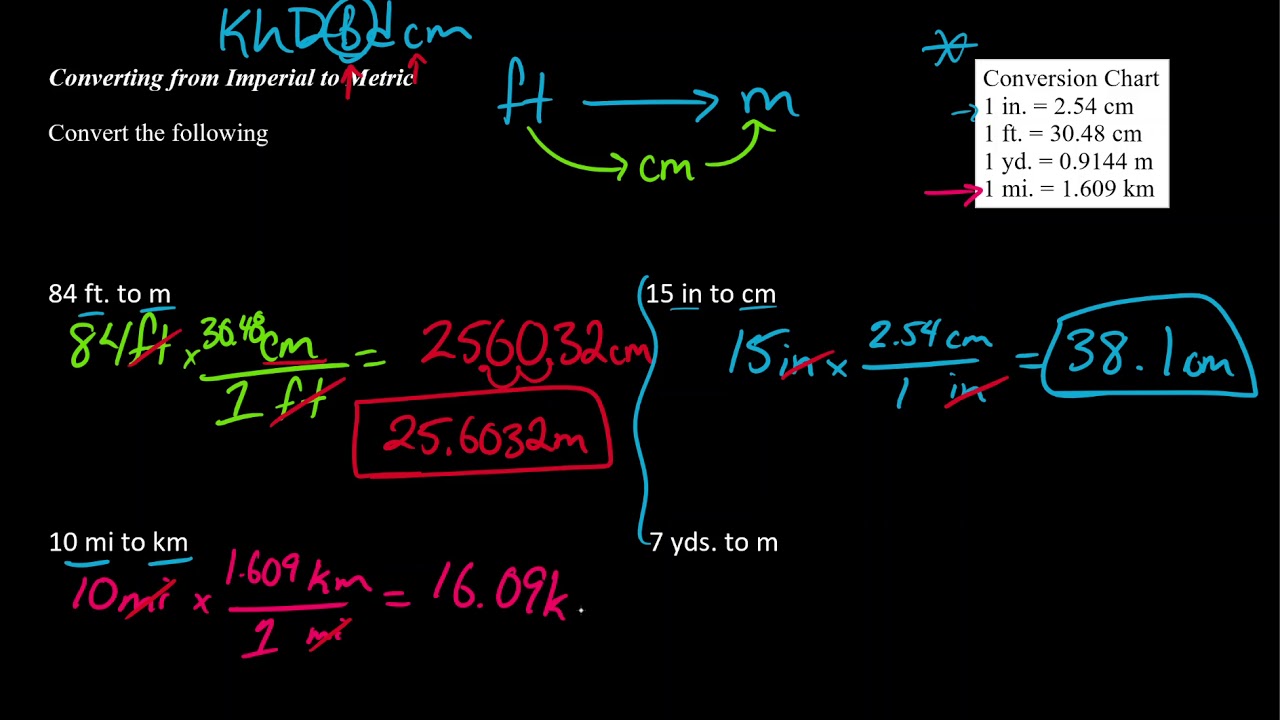 KhDBdcm
Converting from Imperial to Metric
Convert the following
ft → m
cm
Conversion Chart
1 in. = 2.54 cm
1 ft. = 30.48 cm
1 yd. = 0.9144 m
1 mi. = 1.609 km
84 ft. to m
84ft × 30.48cm / 1 ft = 2560.32cm
25.6032m
15 in to cm
15in × 2.54 cm / 1 in = 38.1cm
10 mi to km
10mi × 1.609 km / 1 mi = 16.09k
7 yds. to m